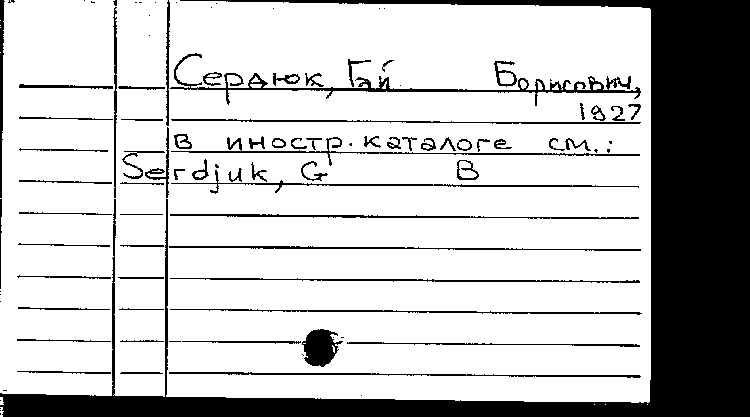 Сердюк, Гэй Борисович,
1927
в иностр. каталоге см.:
Serdjuk, G B